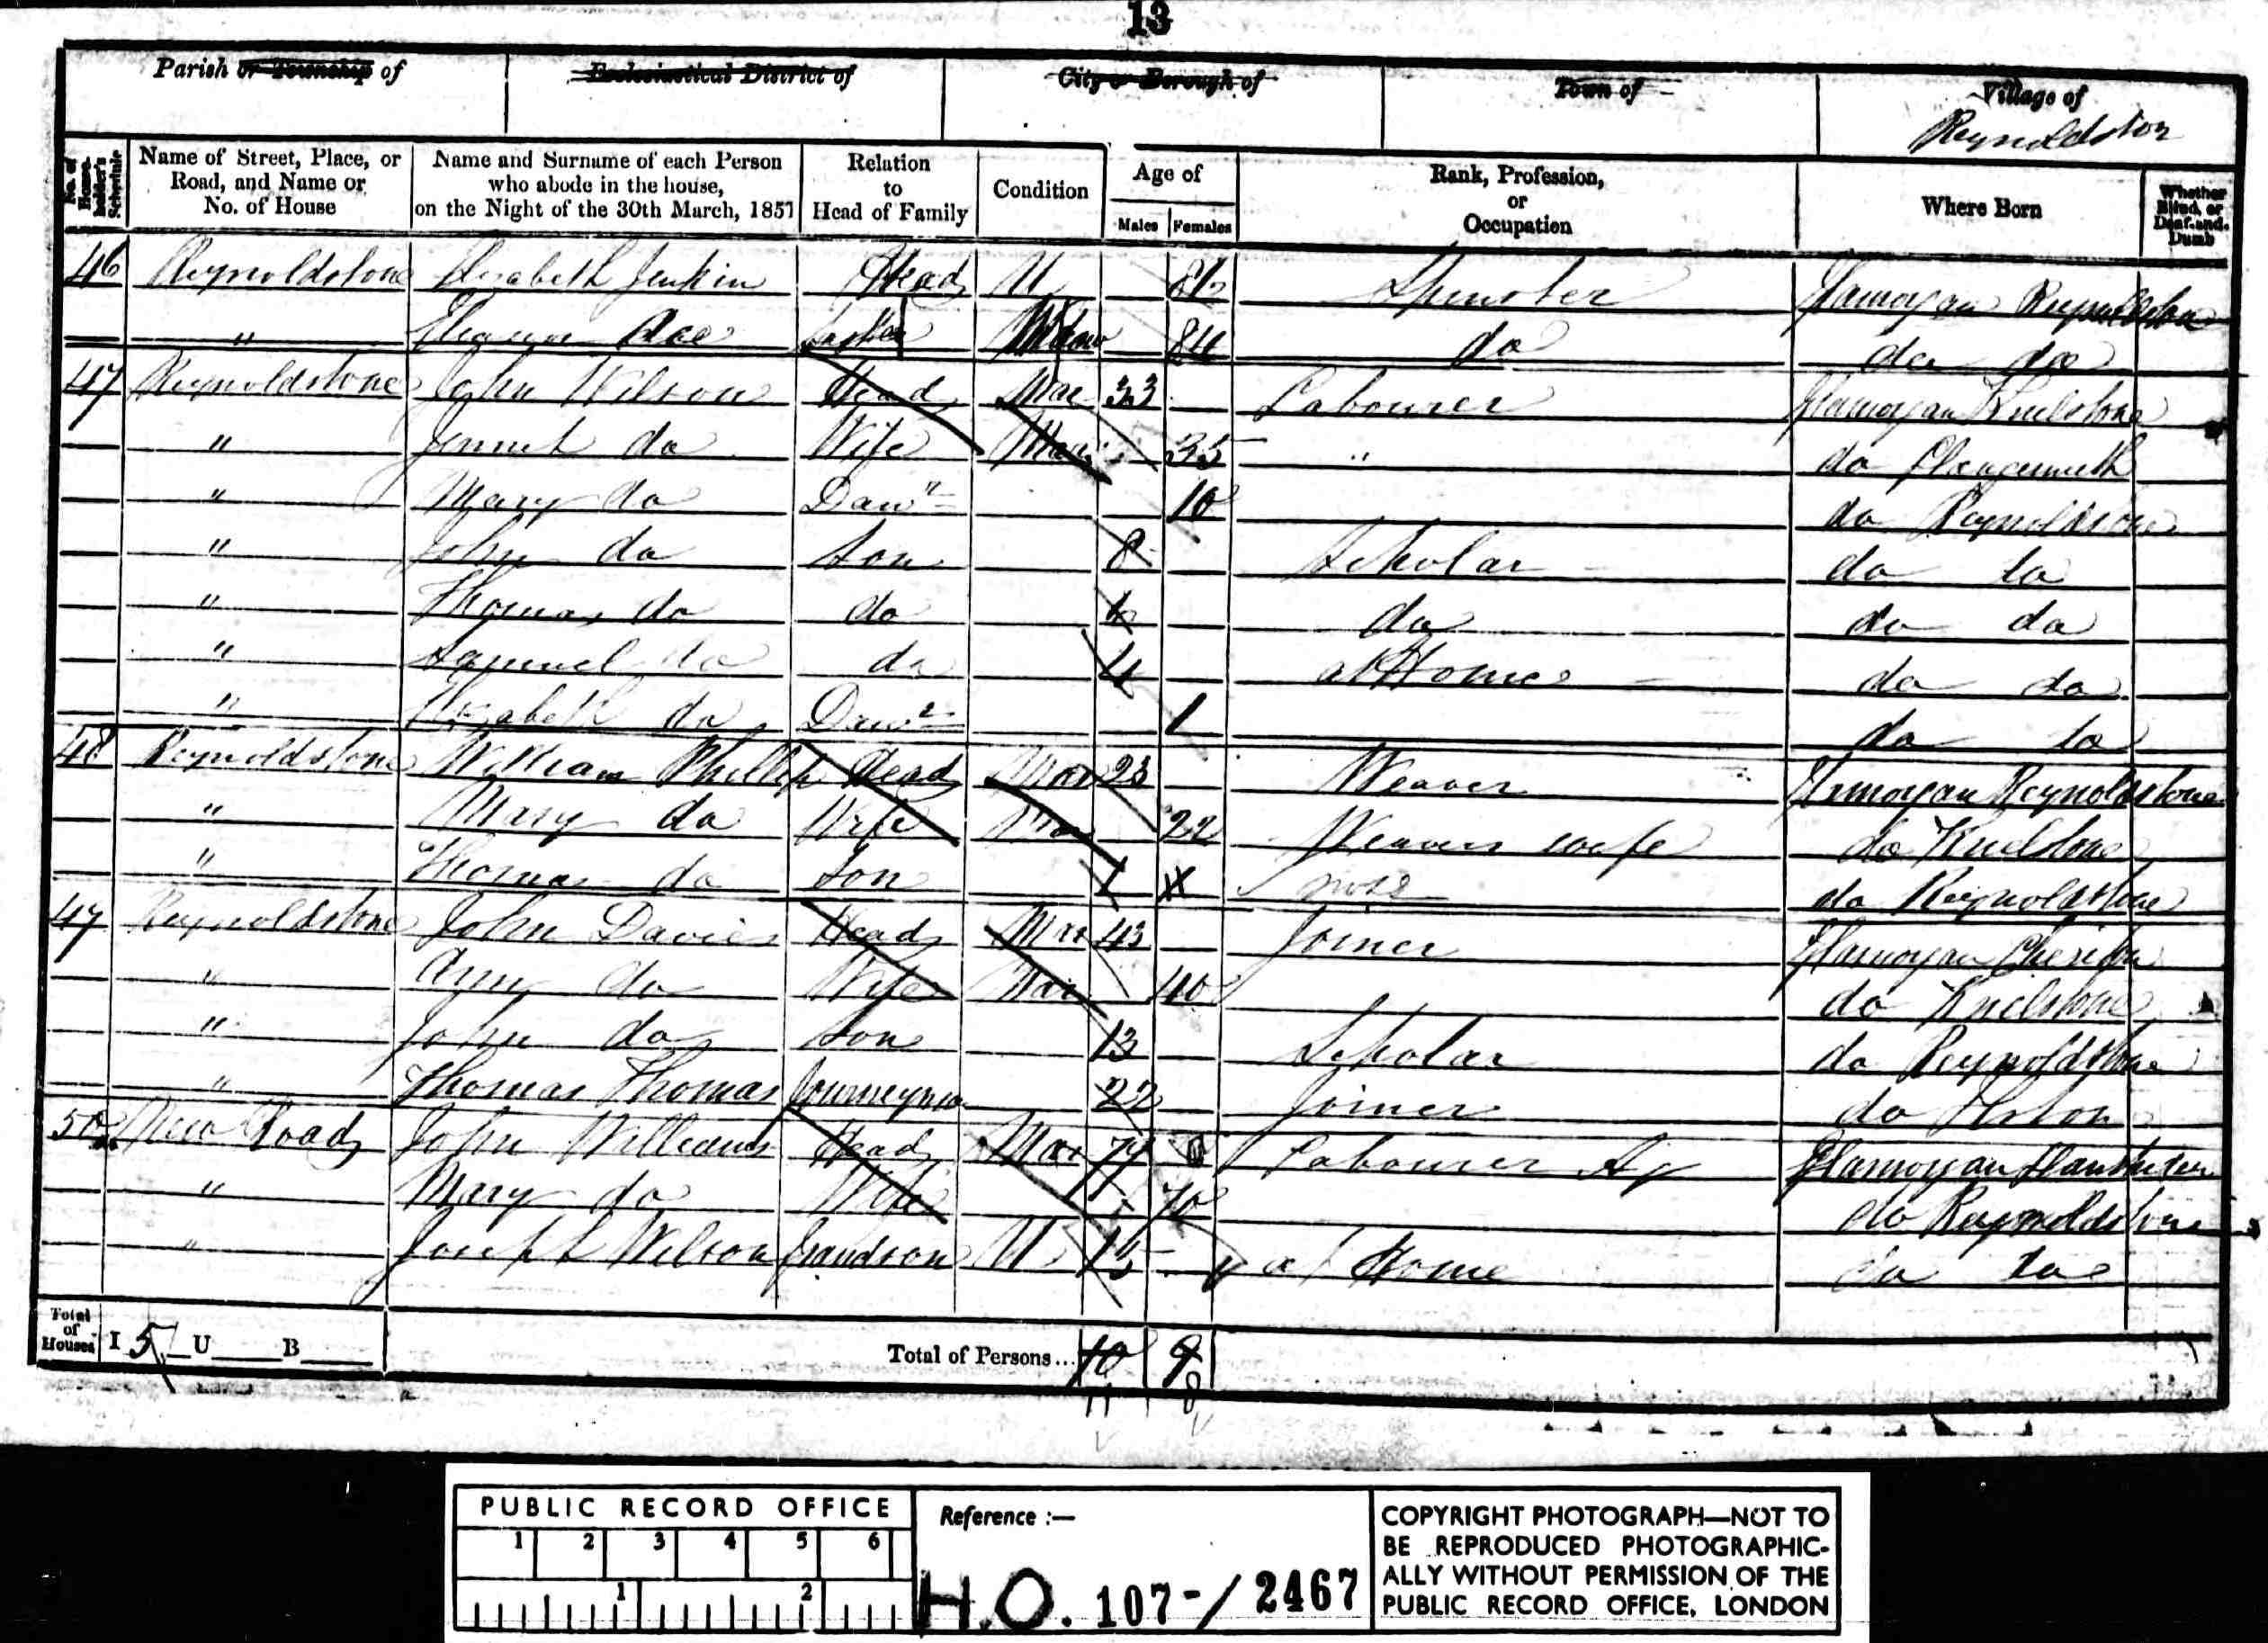 13
Parish or Township of
Ecclesiastical District of
City or Borough of
Town of
Village of
Reynoldston
No. of House-holder's Schedule
Name of Street, Place, or Road, and Name or No. of House
Name and Surname of each Person who abode in the house, on the Night of the 30th March, 1851
Relation to Head of Family
Condition
Age of
Males Females
Rank, Profession, or Occupation
Where Born
Whether Blind, or Deaf-and-Dumb
46 Reynoldstone Elizabeth Jenkin Head U Spinster Glamorgan Reynoldstone
" Ace 84 do do do
47 Reynoldstone John Wilson Head Mar 33 Labourer Glamorgan Knelstone
" Jennet do Wife Mar 35 " do
" Mary do Dawr 10 do Reynoldstone
" John do Son 8 Scholar do do
" Thomas do do do do do
" Samuel do do 4 at Home do do
" Elizabeth do Dawr 1 do do
48 Reynoldstone William Phillip Head Mar 23 Weaver Glamorgan Reynoldstone
" Mary do Wife Mar 22 Weavers wife do Knelstone
" Thomas do Son 1 do Reynoldstone
47 Reynoldstone John Davies Head Mar 43 Joiner Glamorgan Cheriton
" Ann do Wife Mar 40 do Knelstone
" John do Son 13 Scholar do Reynoldstone
" Thomas Thomas Journeyman 22 Joiner do Horton
50 New Road John Williams Head Mar 77 Labourer Ag Glamorgan
" Mary do Wife 70 do Reynoldstone
" Joseph Wilson Grandson U 15 at Home do do
Total of Houses I 5 U B
Total of Persons... 10 9
11 8
PUBLIC RECORD OFFICE
1 2 3 4 5 6
1 2
Reference :-
H.O. 107-/2467
COPYRIGHT PHOTOGRAPH—NOT TO
BE REPRODUCED PHOTOGRAPHIC-
ALLY WITHOUT PERMISSION OF THE
PUBLIC RECORD OFFICE, LONDON